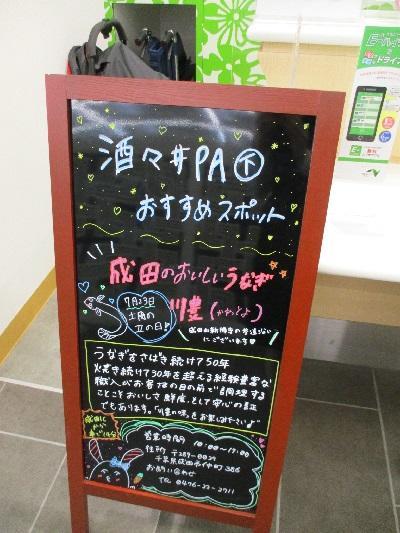 酒々井PA下
おすすめスポット
成田のおいしいうなぎ
川豊(かわとよ)
7月23日
土用の
丑の日♪
成田山新勝寺の参道沿い
にございます
うなぎをさばき続けて50年
焼き続けて30年を超える経験豊富な
職人がお客様の目の前で調理する
ことこそおいしさ 鮮度、そして安心の証
でもあります。「川豊の味」をお楽しみ下さい♪
成田IC
から
車で14分
営業時間 10:00〜17:00
住所 〒289-0024
千葉県成田市仲町386
お問い合わせ
TEL 0476-22-2711